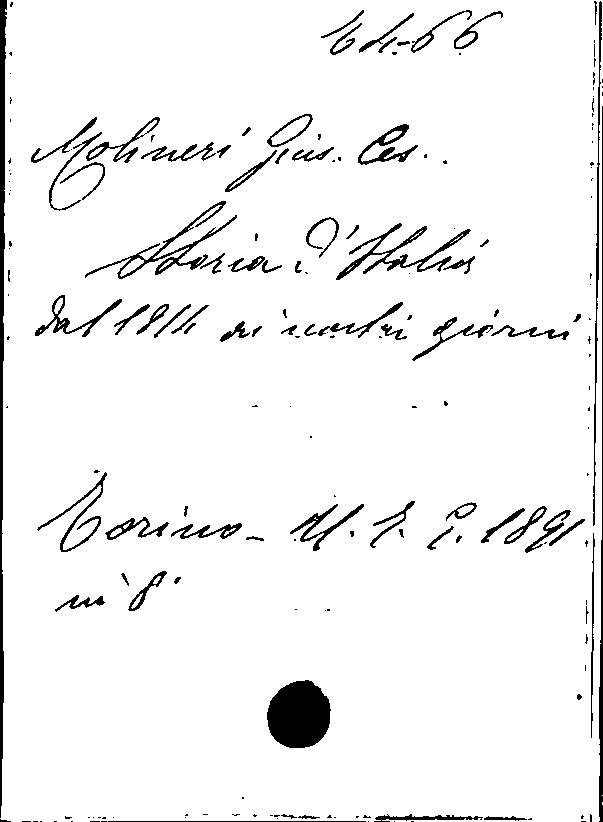 E4-66
Molineri Gius. Ces..
Storia d'Italia
dal 1814 ai nostri giorni
Torino - U. T. E. 1891
in 8°